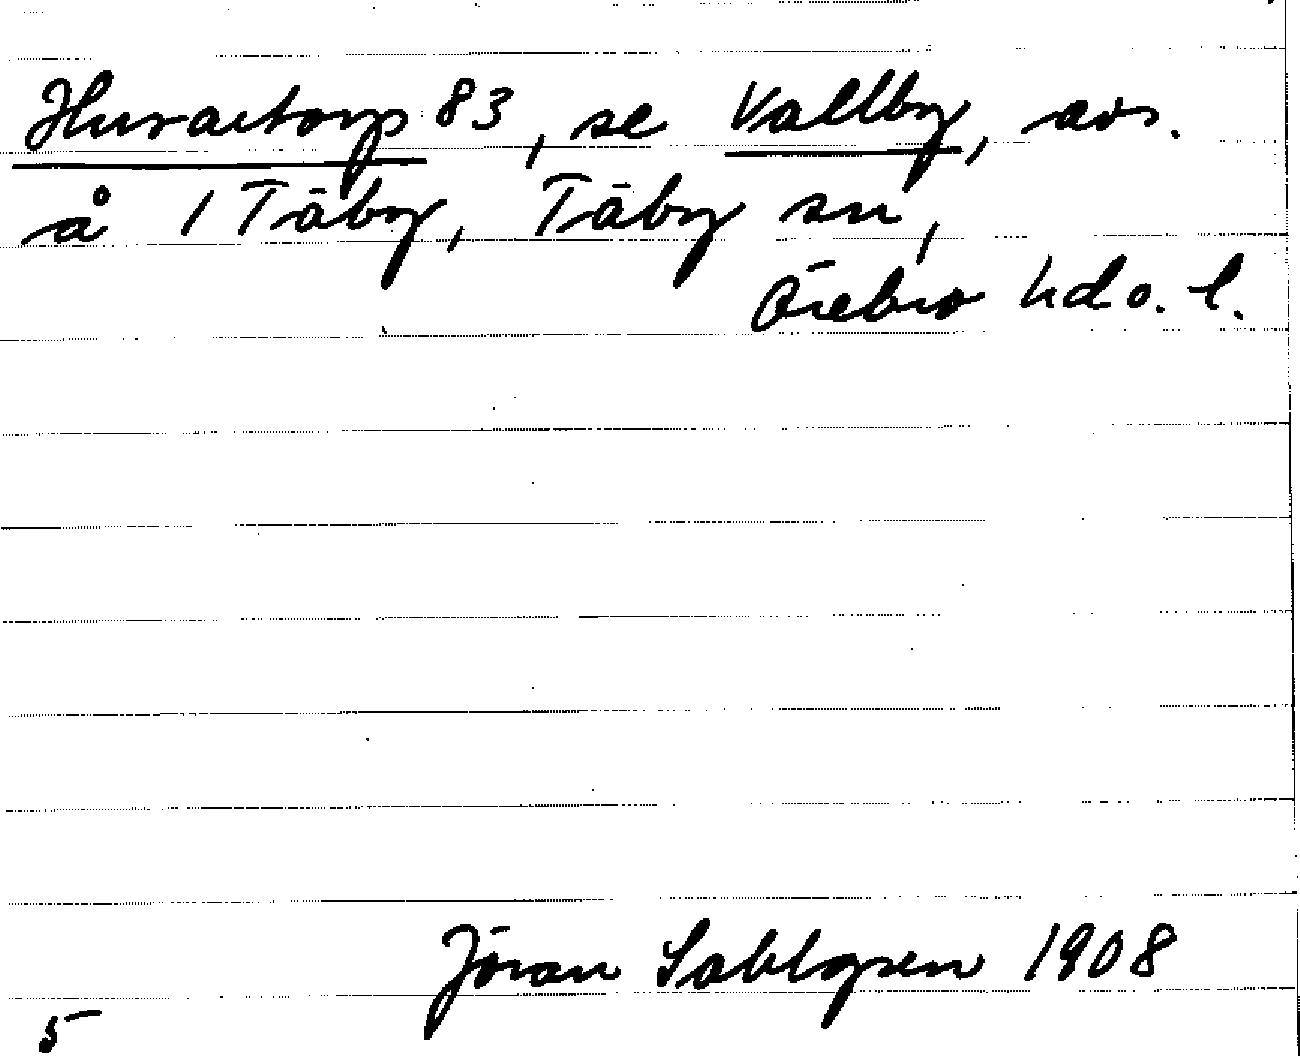 Huvaetorp 83, se Vallby, avs.
å 1 Täby, Täby sn,
Örebro hd o. l.
Jöran Sahlgren 1908
5